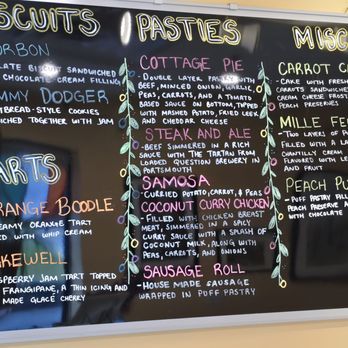 BISCUITS
BORBON
CHOCOLATE BISCUIT SANDWICHED
CHOCOLATE CREAM FILLING
JAMMY DODGER
SHORTBREAD-STYLE COOKIES
SANDWICHED TOGETHER WITH JAM
TARTS
ORANGE BOODLE
CREAMY ORANGE TART
TOPPED WITH WHIP CREAM
BAKEWELL
RASPBERRY JAM TART TOPPED
FRANGIPANE, A THIN ICING AND
MADE GLACE CHERRY
PASTIES
COTTAGE PIE
- DOUBLE LAYER PASTRY WITH
BEEF, MINCED ONION, GARLIC,
PEAS, CARROTS, AND A TOMATO
BASED SAUCE ON BOTTOM, TOPPED
WITH MASHED POTATO, FRIED LEEKS
AND CHEDDAR CHEESE
STEAK AND ALE
- BEEF SIMMERED IN A RICH
SAUCE WITH THE TARTAN FROM
LOADED QUESTION BREWERY IN
PORTSMOUTH
SAMOSA
- CURRIED POTATO, CARROT, & PEAS
COCONUT CURRY CHICKEN
- FILLED WITH CHICKEN BREAST
MEAT, SIMMERED IN A SPICY
CURRY SAUCE WITH A SPLASH OF
COCONUT MILK, ALONG WITH
PEAS, CARROTS, AND ONIONS
SAUSAGE ROLL
- HOUSE MADE SAUSAGE
WRAPPED IN PUFF PASTRY
MISC
CARROT C
- CAKE WITH FRESH
CARROTS SANDWICHED
CREAM CHEESE FROST
PEACH PRESERVES
MILLE FE
- TWO LAYERS OF P
FILLED WITH A L
CHANTILLY CREAM
FLAVORED WITH LE
AND FRUIT
PEACH PU
- PUFF PASTRY FILLE
PEACH PRESERVE A
WITH CHOCOLATE